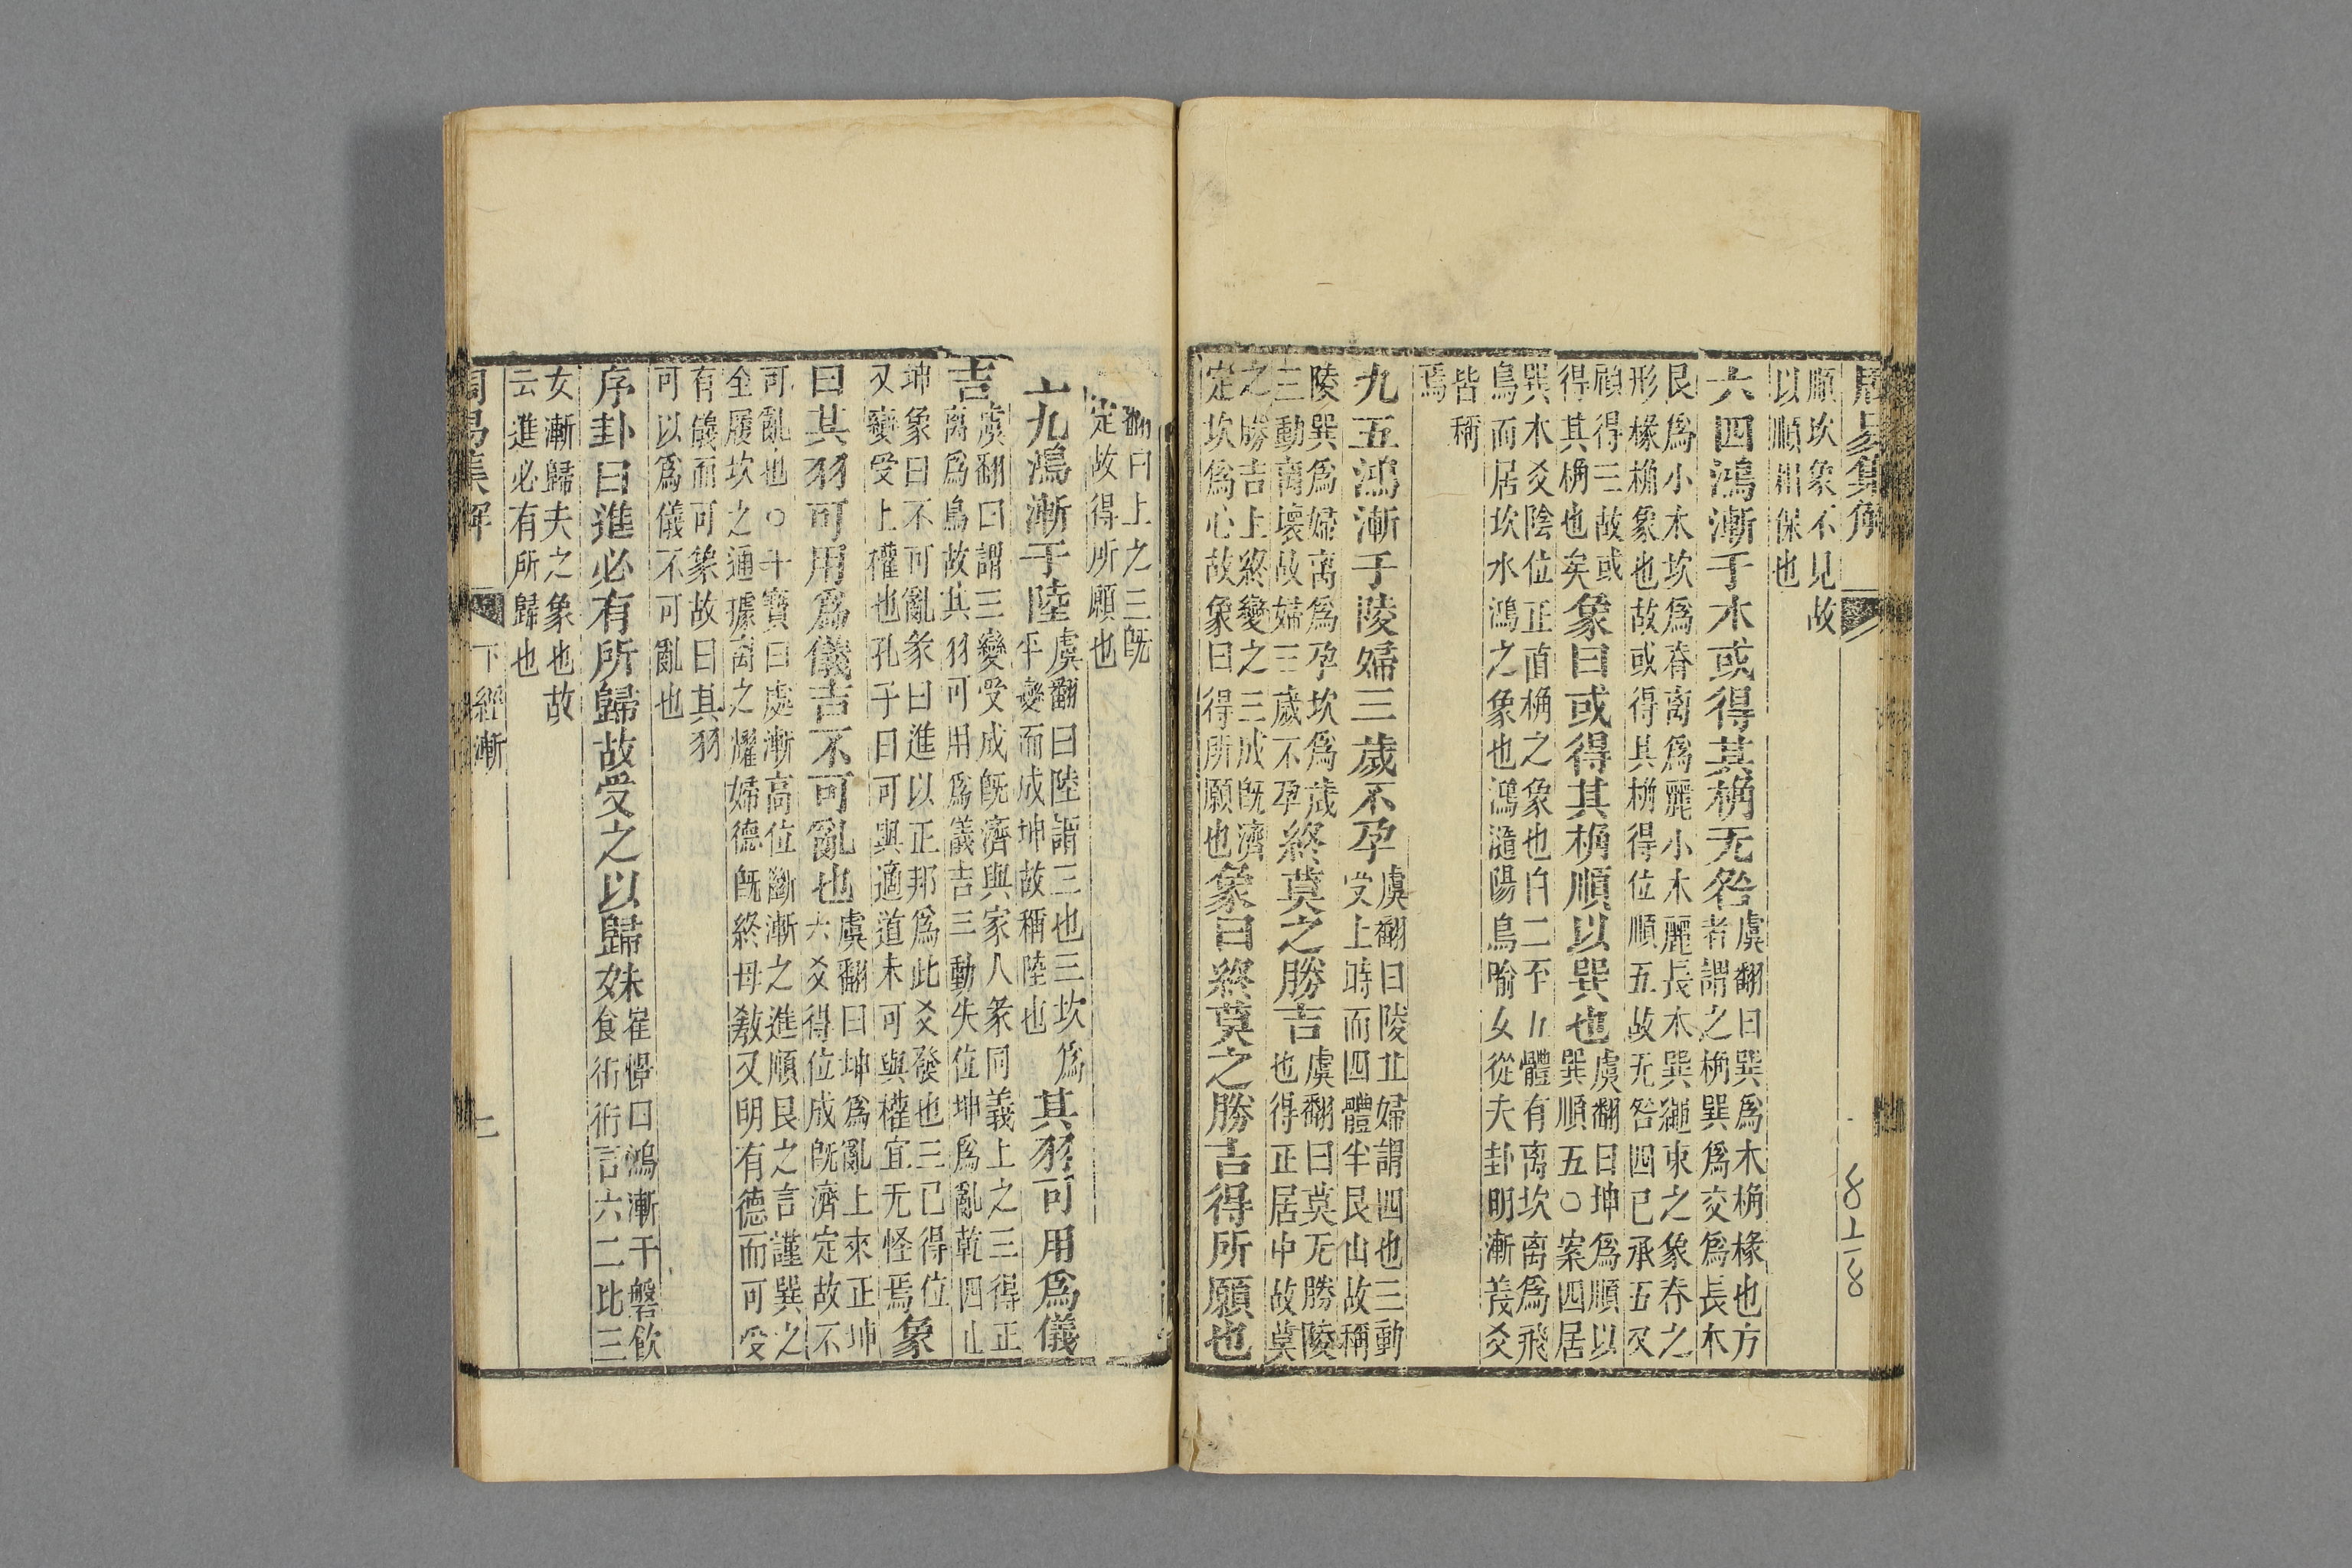 周易集解
順坎象不見故
以順相保也
六四鴻漸于木或得其桷无咎
虞翻曰巽爲木桷椽也方
者謂之桷巽爲交爲長木
艮爲小木坎爲脊离爲麗小木麗長木巽繩束之象脊之
形椽桷象也故或得其桷得位順五故无咎四已承五又
顧得三故或
得其桷也矣
象曰或得其桷順以巽也
虞翻曰坤爲順以
巽順五○案四居
巽木爻陰位正直桷之象也自二至五體有离坎离爲飛
鳥而居坎水鴻之象也鴻隨陽鳥喻女從夫卦明漸義爻
皆稱
焉
九五鴻漸于陵婦三歲不孕
虞翻曰陵丘婦謂四也三動
受上時而四體半艮山故稱
陵巽爲婦离爲孕坎爲歲
三動离壞故婦三歲不孕
終莫之勝吉
虞翻曰莫无勝陵
也得正居中故莫
之勝吉上終變之三成旣濟
定坎爲心故象曰得所願也
象曰終莫之勝吉得所願也
翻曰上之三旣
定故得所願也
上九鴻漸于陸
虞翻曰陸謂三也三坎爲
平變而成坤故稱陸也
其羽可用爲儀
吉
虞翻曰謂三變受成旣濟與家人彖同義上之三得正
离爲鳥故其羽可用爲儀吉三動失位坤爲亂乾四止
坤象曰不可亂彖曰進以正邦爲此爻發也三已得位
又變受上權也孔子曰可與適道未可與權宜无怪焉
象
曰其羽可用爲儀吉不可亂也
虞翻曰坤爲亂上來正坤
六爻得位成旣濟定故不
可亂也○干寶曰處漸高位斷漸之進順艮之言謹巽之
全履坎之通據离之耀婦德旣終母敎又明有德而可受
有儀而可象故曰其羽
可以爲儀不可亂也
序卦曰進必有所歸故受之以歸妹
崔憬曰鴻漸于磐飲
食衎衎言六二比三
女漸歸夫之象也故
云進必有所歸也
周易集解
下經漸